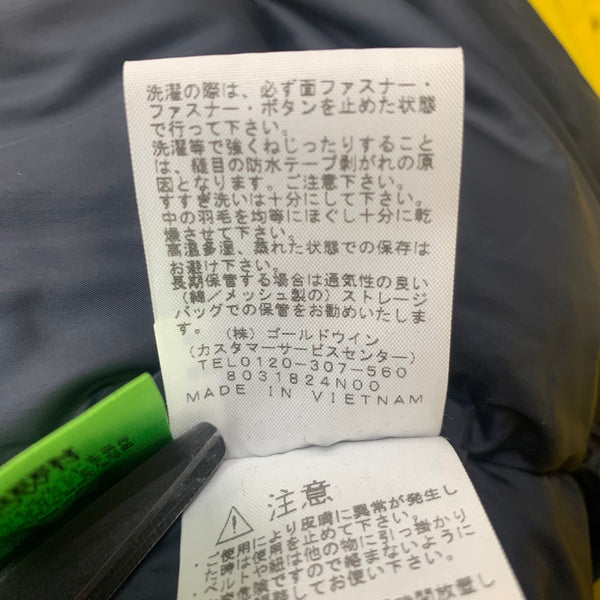 洗濯の際は、必ず面ファスナー・
ファスナー・ボタンを止めた状態
で行って下さい。
洗濯等で強くねじったりすること
は、縫目の防水テープ剥がれの原
因となります。ご注意下さい。
すすぎ洗いは十分にして下さい。
中の羽毛を均等にほぐし十分に乾
燥させて下さい。
高温多湿、蒸れた状態での保存は
お避け下さい。
長期保管する場合は通気性の良い
(綿/メッシュ製の)ストレージ
バッグでの保管をお勧めいたしま
す。
(株)ゴールドウイン
(カスタマーサービスセンター)
TEL0120-307-560
8031824N00
MADE IN VIETNAM
注意
ご使用により皮膚に異常が発生し
たらご使用を止めて下さい。
ベルトや紐は他の物に引っ掛かり
険ですので絡まないように
整してお使い下さい。
時間放置し